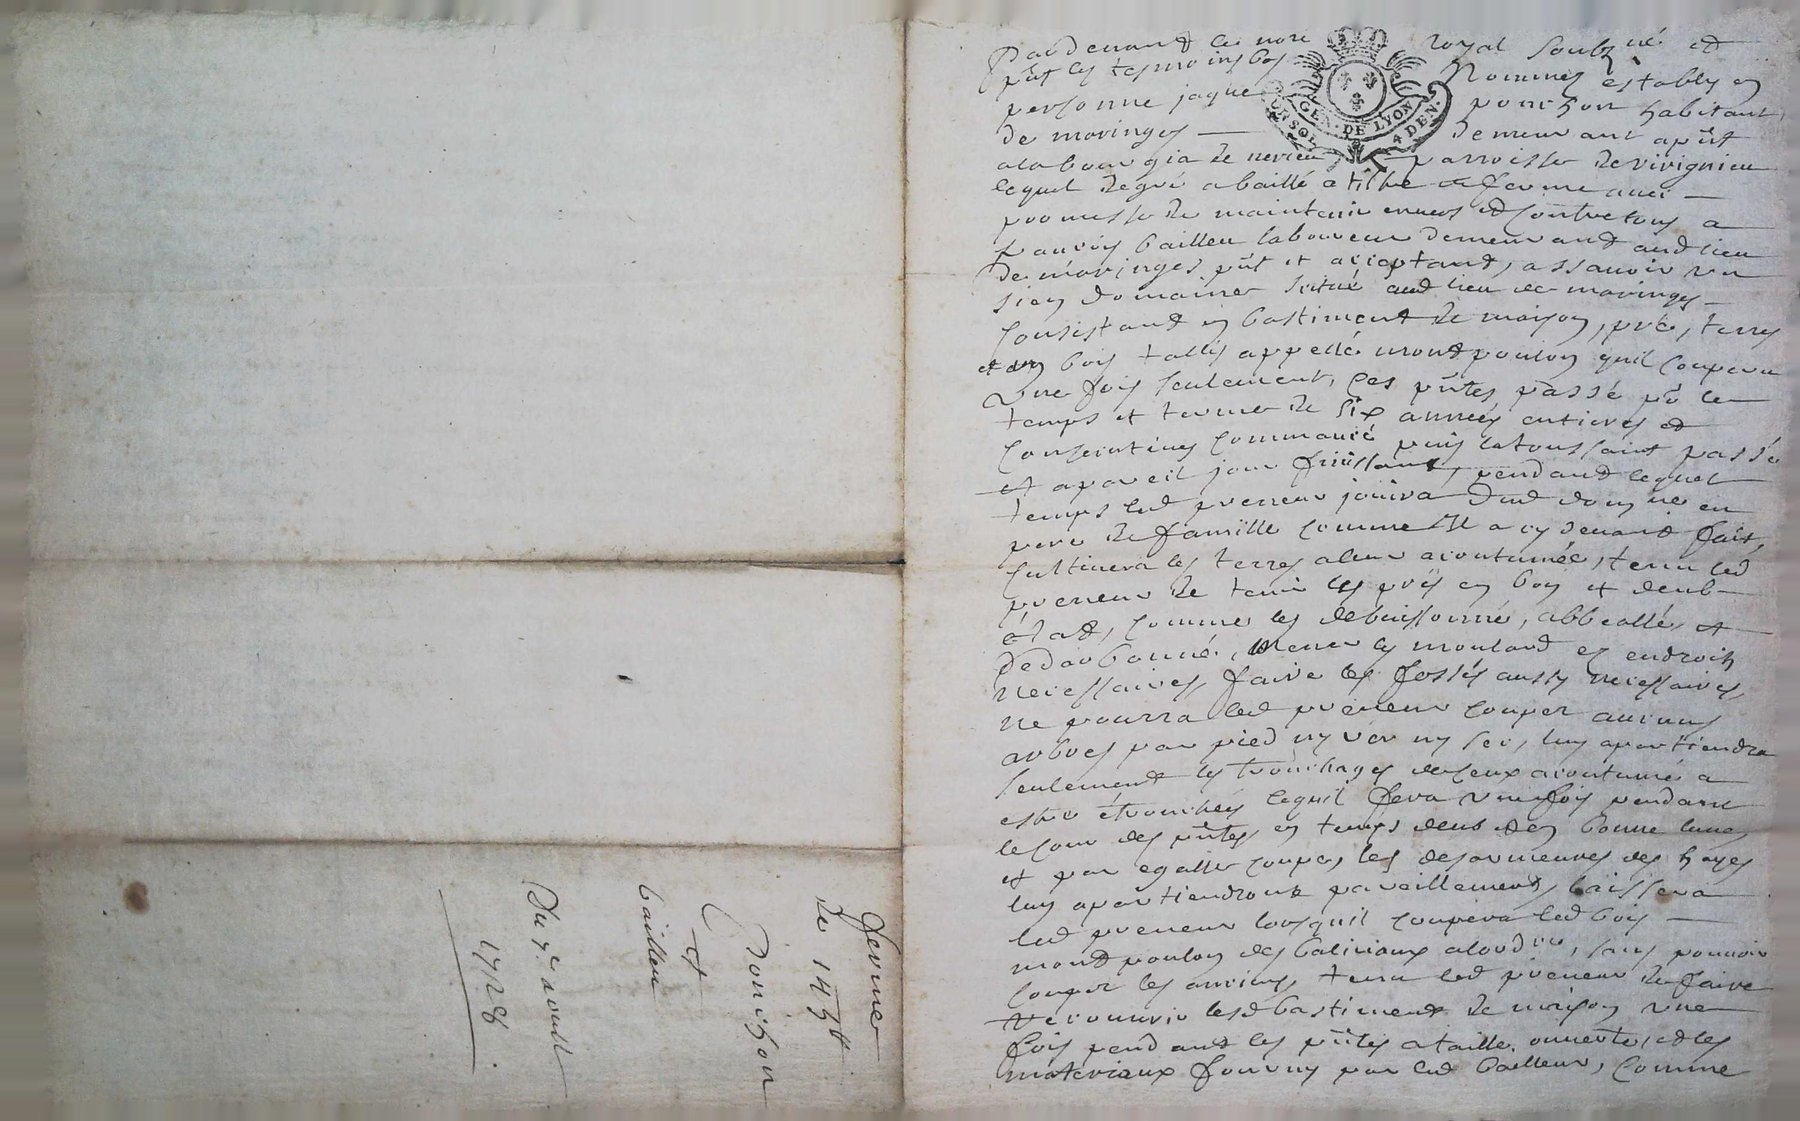 Pardevant le nore royal soubzné et
pñt les tesmoins bas Nommés estably en
personne jaque ponchon habitant
de moringes demeurant apñt
a la bourgia de nerieu parroisse de virignieu
lequel de gré a baillé a tiltre de ferme avec
promesse de maintenir envers et contre tous a
françois bailleu laboureur demeurant aud lieu
de moringes pñt et acceptant, assavoir un
sien domaine scitué aud lieu de moringes
consistant en bastiment de maison, pré, terres
et un bois tallis appellé montpoulon quil coupera
une fois seulement, ces pñtes passé pr le
temps et terme de six années entieres et
consecutives commancé puis la toussaint passé
et a pareil jour finissant, pendant lequel
temps led preneur jouira dud domne en
pere de famille comme il a cy devant fait,
cultivera les terres a leur acoutumée, tenu led
preneur de tenir les prés en bon et deub
état, comme les debuissonné, abbeallé, et
dedarbonné, mener les moulard es endroits
necessaires, faire les fossés aussy necessaires,
ne pourra led preneur couper aucuns
arbres par pied ny ver ny sec, luy apartiendra
seulement les tronchages de ceux acoutumé a
estre étronchés lequil fera une fois pendant
le cour des pñtes en temps deub et en bonne lune
et par egalle coupe, les desarmeures des hayes
luy apartiendront pareillement, laissera
led preneur lorsquil coupera led bois
montpoulon des baliviaux a lordce, sans pouvoir
couper les anciens, tenu led preneur de faire
recouvrir lesd bastiment de maison une
fois pendant les pñtes a taille ouverte, et les
materiaux fourny par led bailleur, comme
GEN. DE LYON
4 DEN.
ferme
de 145lt
Ponchon
et
bailleu
Du 7e aoust
1728